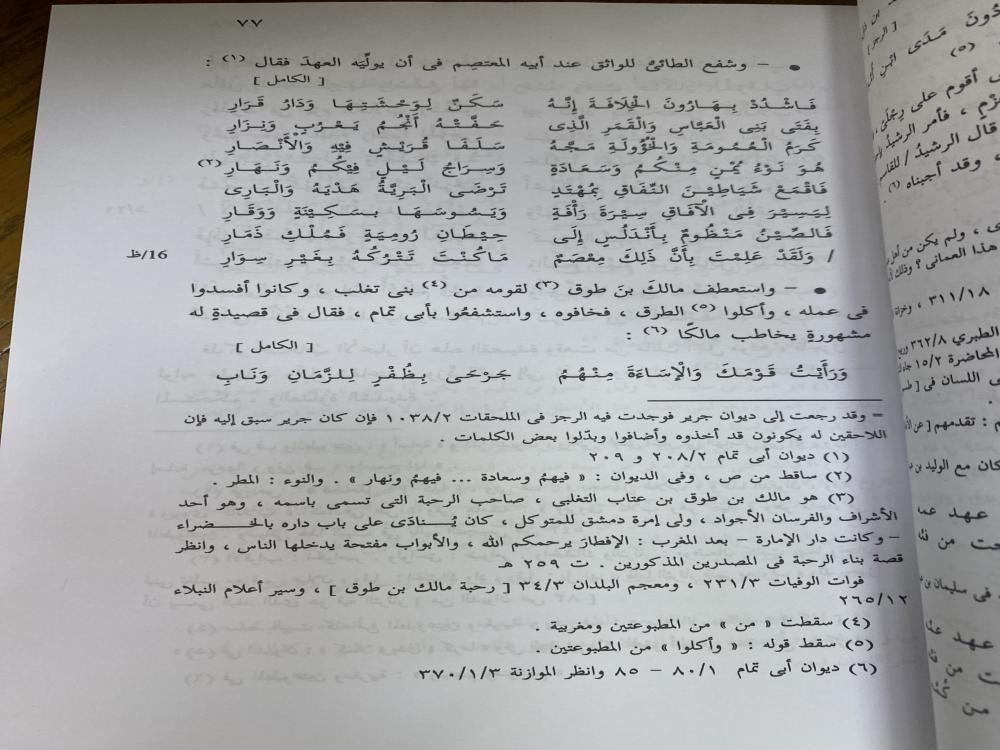 ٧٧
• – وشفع الطائىُّ للواثق عند أبيه المعتصم فى أن يولِّيَه العهدَ فقال (١) :
[ الكامل ]
فَاشْدُدْ بِهَارُونَ الْخِلَافَةَ إِنَّهُ سَكَنٌ لِوَحْشَتِهَا وَدَارُ قَرَارِ
بِفَتَى بَنِى الْعَبَّاسِ وَالْقَمَرِ الَّذِى حَفَّتْهُ أَنْجُمُ يَعْرُبٍ وَنِزَارِ
كَرَمُ الْعُمُومَةِ وَالْخُؤُولَةِ مَجَّهُ سَلَفَا قُرَيْشٍ فِيْهِ وَالْأَنْصَارِ
هُوَ نَوْءُ يُمْنٍ مِنْكُمُ وَسَعَادَةٍ وَسِرَاجُ لَيْلٍ فِيْكُمُ وَنَهَارِ (٢)
فَاقْمَعْ شَيَاطِيْنَ النِّفَاقِ بِمُهْتَدٍ تَرْضَى الْبَرِيَّةُ هَدْيَهُ وَالْبَارِى
لِيَسِيْرَ فِى الْآفَاقِ سِيْرَةَ رَأْفَةٍ وَيَسُوسَهَا بِسَكِيْنَةٍ وَوَقَارِ
فَالصِّيْنُ مَنْظُومٌ بِأَنْدَلُسٍ إِلَى حِيْطَانِ رُومِيَةٍ فَمُلْكِ ذَمَارِ
/ وَلَقَدْ عَلِمْتَ بِأَنَّ ذَلِكَ مِعْصَمٌ مَاكُنْتَ تَتْرُكُهُ بِغَيْرِ سِوَارِ 16/ظ
• – واستعطف مالكَ بنَ طوق (٣) لقومه من (٤) بنى تغلب ، وكانوا أفسدوا
فى عمله ، وأكلوا (٥) الطرق ، فخافوه ، واستشفعُوا بأبى تمام ، فقال فى قصيدةٍ له
مشهورةٍ يخاطب مالكًا (٦) :
[ الكامل ]
وَرَأَيْتُ قَوْمَكَ وَالْإِسَاءَةُ مِنْهُمُ جَرْحَى بِظُفْرٍ لِلزَّمَانِ وَنَابِ
= وقد رجعت إلى ديوان جرير فوجدت فيه الرجز فى الملحقات ١٠٣٨/٢ فإن كان جرير سبق إليه فإن
اللاحقين له يكونون قد أخذوه وأضافوا وبدّلوا بعض الكلمات .
(١) ديوان أبى تمام ٢٠٨/٢ و ٢٠٩
(٢) ساقط من ص ، وفى الديوان : « فيهمُ وسعادة ... فيهمُ ونهار » . والنوء : المطر .
(٣) هو مالك بن طوق بن عتاب التغلبى ، صاحب الرحبة التى تسمى باسمه ، وهو أحد
الأشراف والفرسان الأجواد ، ولى إمرة دمشق للمتوكل ، كان يُنادَى على باب داره بالخضراء
– وكانت دار الإمارة – بعد المغرب : الإفطارَ يرحمكم الله ، والأبواب مفتحة يدخلها الناس ، وانظر
قصة بناء الرحبة فى المصدرين المذكورين . ت ٢٥٩ هـ
فوات الوفيات ٢٣١/٣ ، ومعجم البلدان ٣٤/٣ [ رحبة مالك بن طوق ] ، وسير أعلام النبلاء
٢٦٥/١٢
(٤) سقطت « من » من المطبوعتين ومغربية .
(٥) سقط قوله : « وأكلوا » من المطبوعتين .
(٦) ديوان أبى تمام ٨٠/١ – ٨٥ وانظر الموازنة ٣٧٠/١/٣
[ الرجز ]
أقوم على رِجْلَىَّ
، فأمر الرشيدُ
قال الرشيدُ / للقاسم
، وقد أجبناه (٦)
، ولم يكن من أهل
هذا العمانى ؟ وذلك
٣١١/١٨ ، وخزانة
الطبرى ٣٦٢/٨
المحاضرة ١٥/٢
اللسان فى
: تقدمهم
كان مع الوليد بن